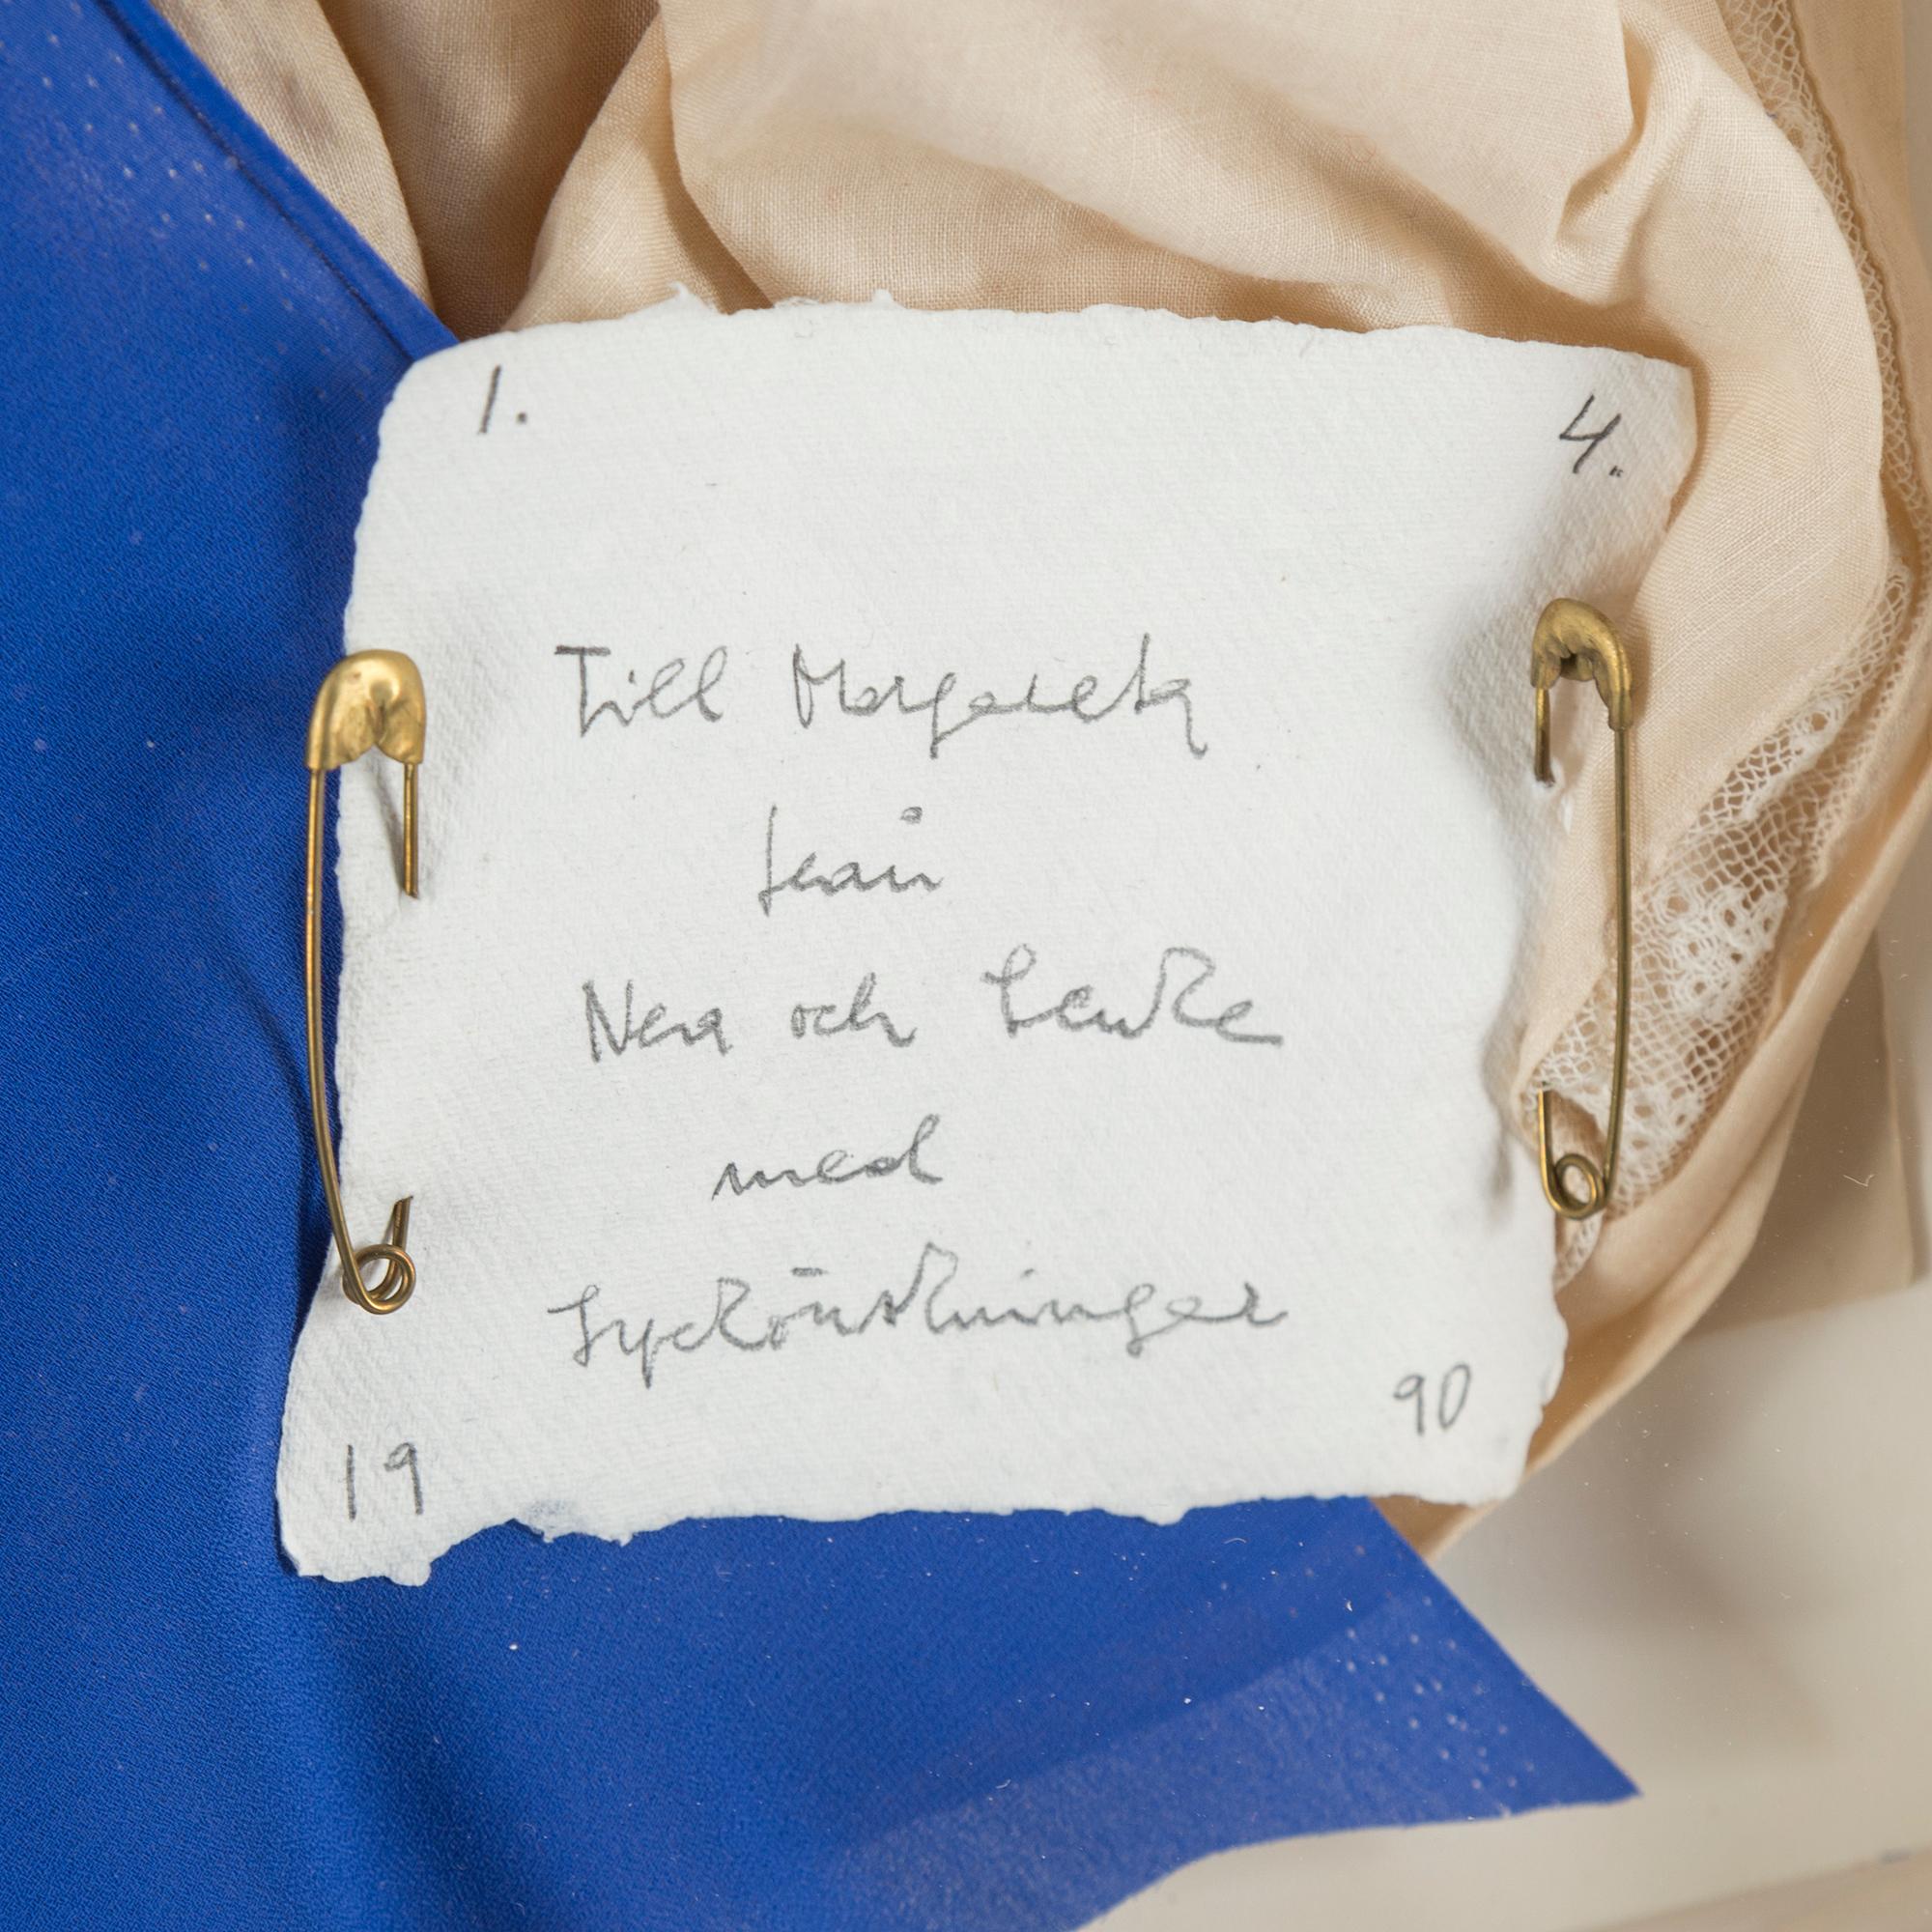 1. 4.
Till Margareta
från
Nea och
med
Lyckönskningar
19 90